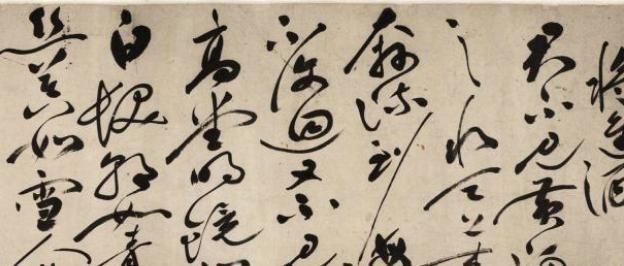 將進酒
君不見黃河
之水天上來
奔流到海
不復迴又不見
高堂明鏡
白髮朝如青
絲暮如雪人